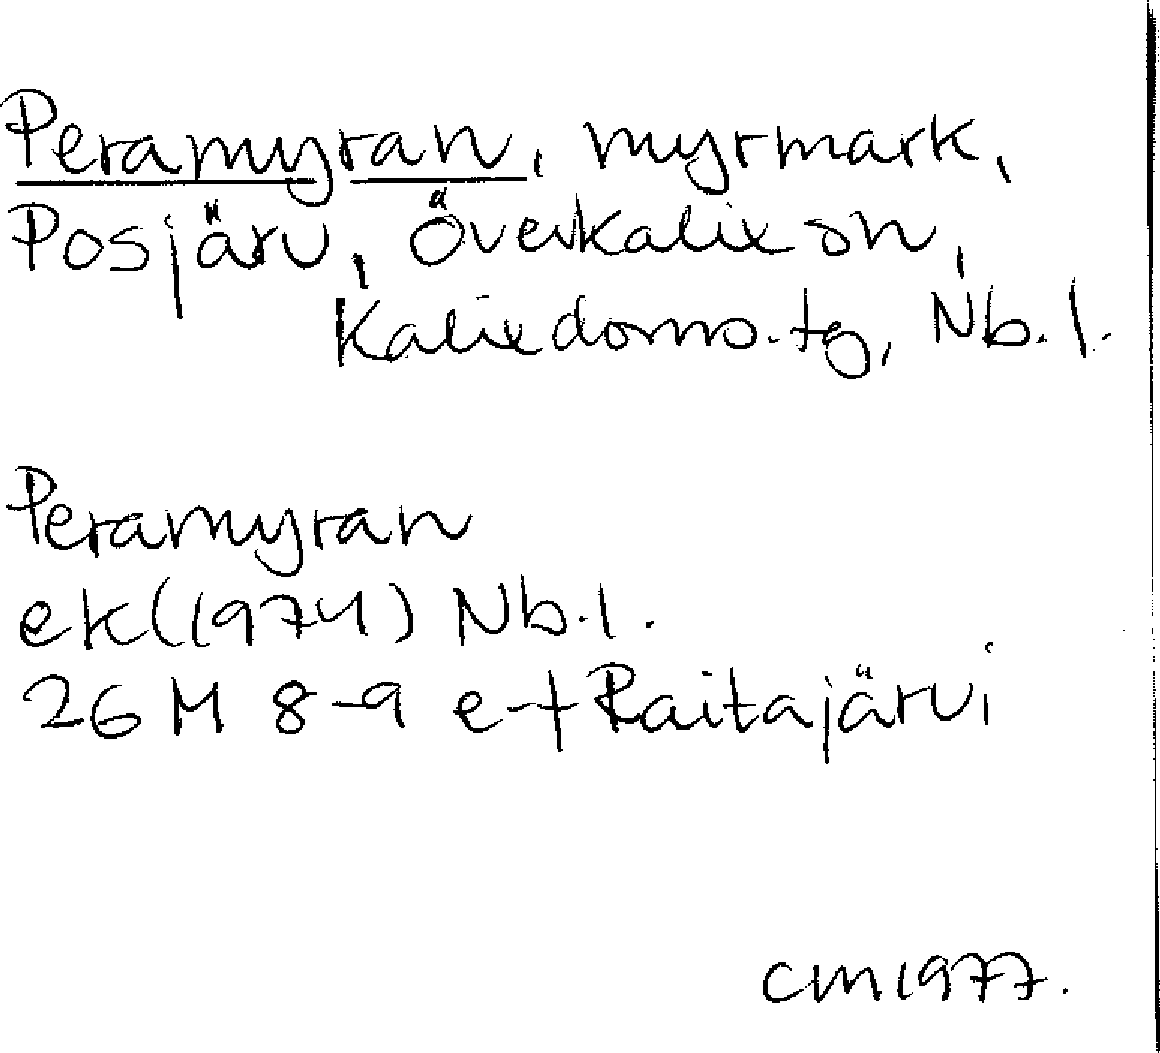 Peramyran, myrmark,
Posjärv, Överkalix sn,
Kalix doms.tg, Nb.l.
Peramyran
ek(1974) Nb.l.
26 M 8-9 e-f Raitajärvi
CM 1977.